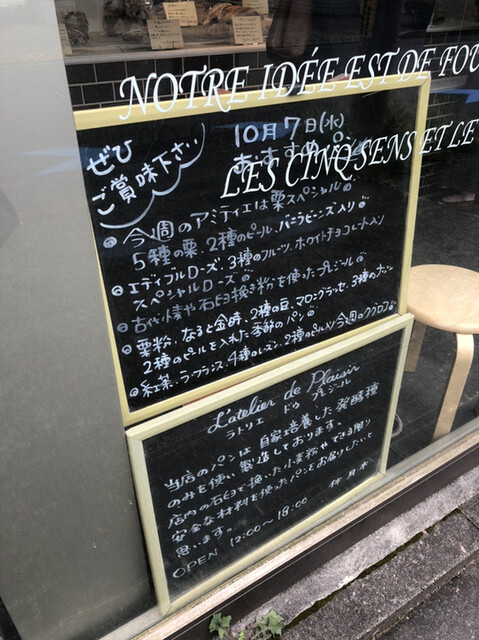 NOTRE IDÉE EST DE FOU
LES CINQ SENS ET LE
ぜひ
ご賞味下さい
10月7日(水)
おすすめパン
今週のアミティエは栗スペシャル
5種の栗、2種のピール、バニラビーンズ入り
エディブルローズ、3種のフルーツ、ホワイトチョコレート入り
スペシャルローズ
古代小麦や石臼挽き粉を使ったプレジール
栗粉、なると金時、2種の豆、マロングラッセ、3種の
2種のピールを入れた季節のパン
紅茶、ラ・フランス、4種のレーズン、2種のピール入り今週のクグロフ
L'atelier de Plaisir
ラトリエ ドゥ プレジール
当店のパンは自家培養した発酵種
のみを使い製造しております。
店内の石臼で挽いた小麦粉やできる限り
安全な材料を使ったパンをお届けしたいと
思います。
OPEN 12:00〜18:00 休 月木